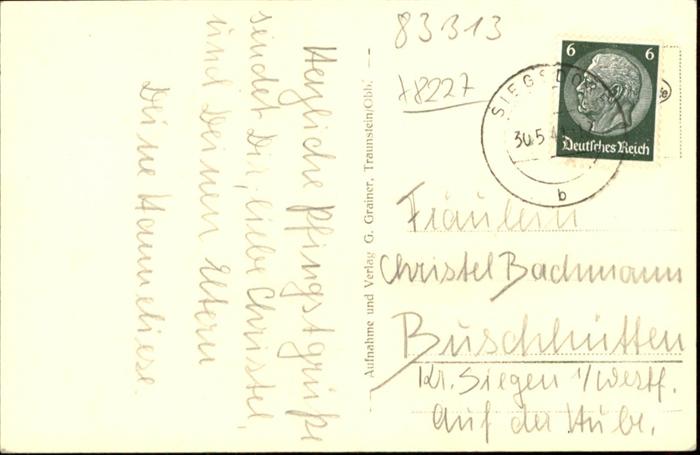 Herzliche Pfingstgrüße
sendet Dir, liebe Christel,
und Deinen Eltern
Deine Hanneliese.
Aufnahme und Verlag G. Grainer, Traunstein/Obb.
83313
78227
6 6
Deutsches Reich
SIEGSDORF
30.5.
b
Fräulein
Christel Bachmann
Buschhütten
Kr. Siegen i/Westf.
Auf der Hube.